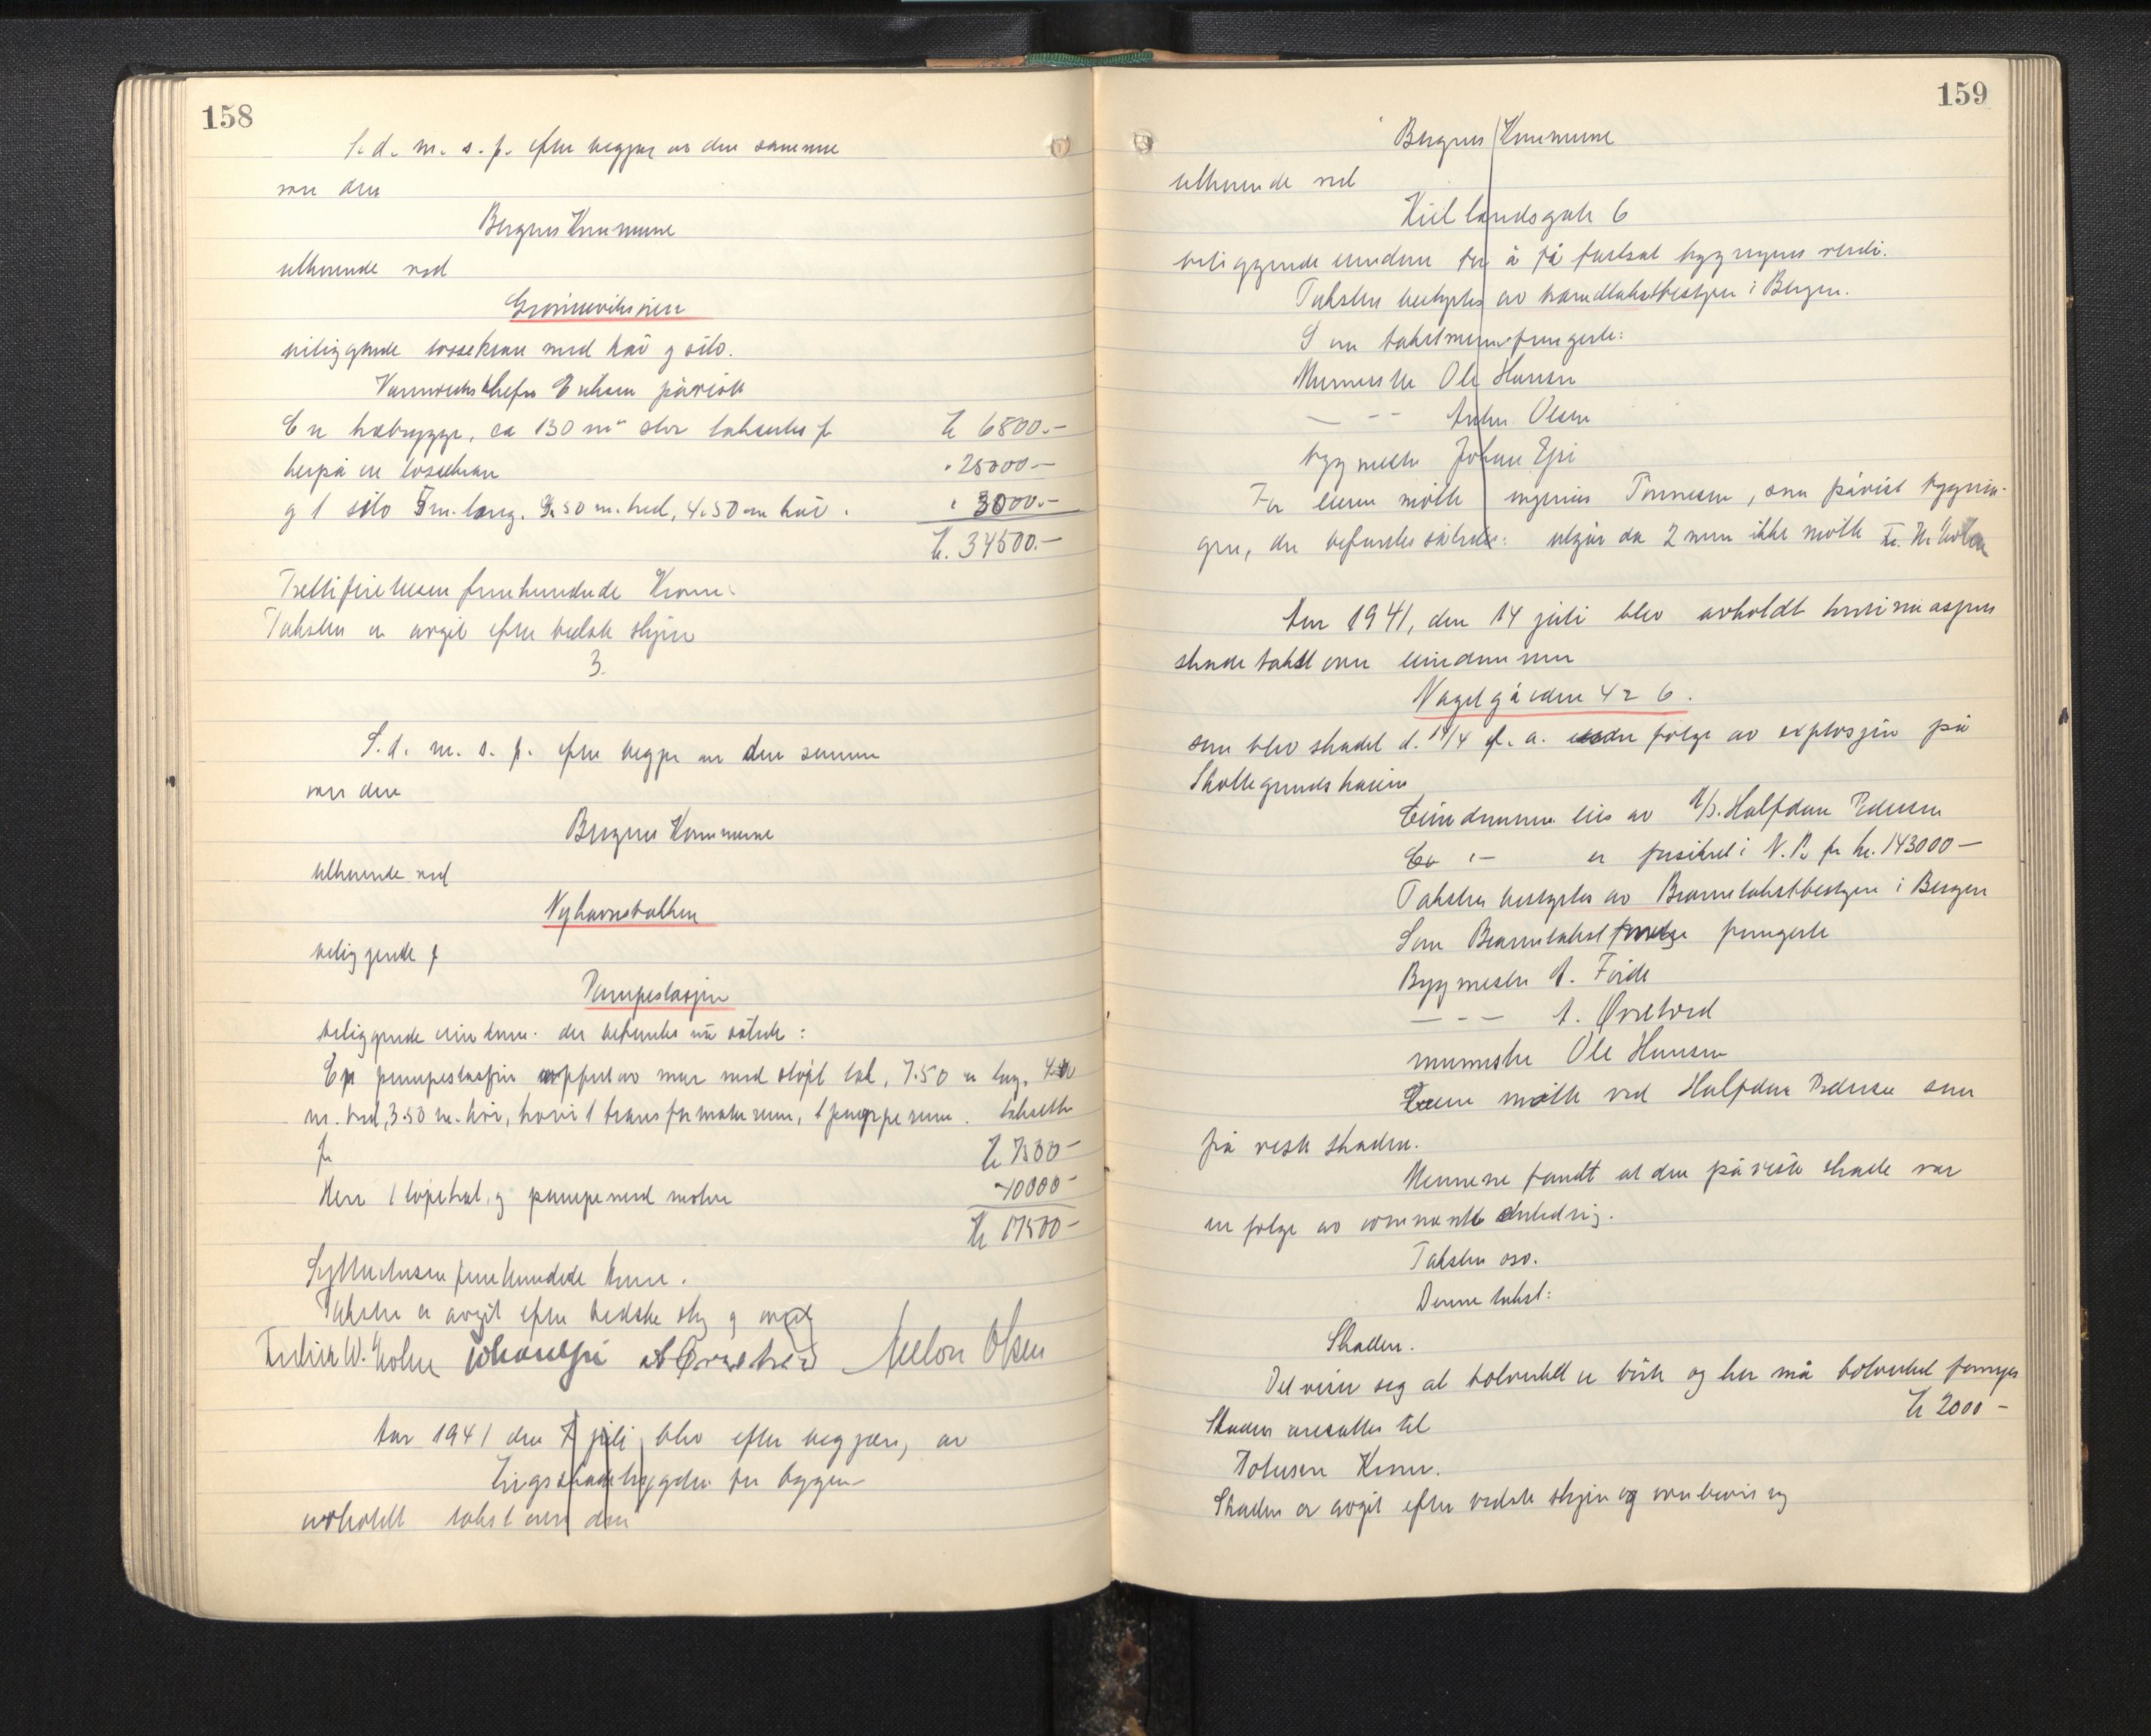 158
S. d. m. s. f. efter begjær av den samme
over den
Bergens Kommune
tilhørende ved
Grønneviksøren
beliggende lossekran med kai og silo.
Vannverkschefen Eriksen påviste
En træbrygge, ca 130 m² stor takseres for kr 6500.-
herpå en lossekran " 25000.-
og 1 silo 5 m. lang. 3.50 m. bred, 4.50 m høi. " 3000.-
kr. 34500.-
Trettifiretusen femhundrede Kroner.
Taksten er avgit efter bedste skjøn
3.
S. d. m. s. f. efter begjær av den samme
over den
Bergens Kommune
tilhørende ved
Nyhavnsbakken
beliggende
Pumpestasjon
beliggende eiendom. der befandtes nu således:
En pumpestasjon opført av mur med støpt tak, 7.50 m lang. 4.00
m. bred, 3.50 m. høi, hvori 1 transformatorrum, 1 pumperum. taksert
for kr 7500-
Herr 1 løpekat og pumpe med motor 10000-
kr 17500-
Syttentusen femhundrede kroner.
Taksten er avgit efter bedste skj og
Fredrik W. Holm Johan Epi A Øvretveit Anton Olsen
Aar 1941 den 7 juli blev efter begjæring av
Krigsskadetrygden for bygger
avholdt takst over den
159
Bergens Kommune
tilhørende ved
Kiellandsgate 6
beliggende eiendom for å få fastsat bygningens verdi.
Taksten bestyrtes av branntakstbestyrer i Bergen.
Som takstmenn fungerte:
Murmester Ole Hansen
— -- Anton Olsen
byggmester Johan Epi
For eieren møtte ingeniør Tønnesen, som påviste bygnin-
gen, der befandtes således: utgår da 2 menn ikke møtte Fr. W. Holm
Aar 1941, den 14 juli blev avholdt
skadetakst over eiendommen
Nagelgården 4 & 6.
som blev skadet d. 14/4 d. a. under følge av explosjon på
Skoltegrundskaien
Eiendommen eies av A/S. Halfdan Pedersen
Do :- er forsikret i N. B. for kr. 143000 —
Taksten bestyrtes av Branntakstbestyrer i Bergen
Som Branntakst fungerte
Byggmester A. Førde
— - — A. Øvretveit
murmester Ole Hansen
Eieren møtte ved Halfdan Pedersen som
på viste skaden.
Mennene fandt at den påviste skade var
en følge av omnevnte anledning.
Taksten osv.
Denne takst:
Skaden.
Det viser seg at bolverket er og her må bolverket fornyes
Skaden ansættes til kr 2000 -
Totusen Kroner.
Skaden er avgit efter bedste skjøn og overbevisning